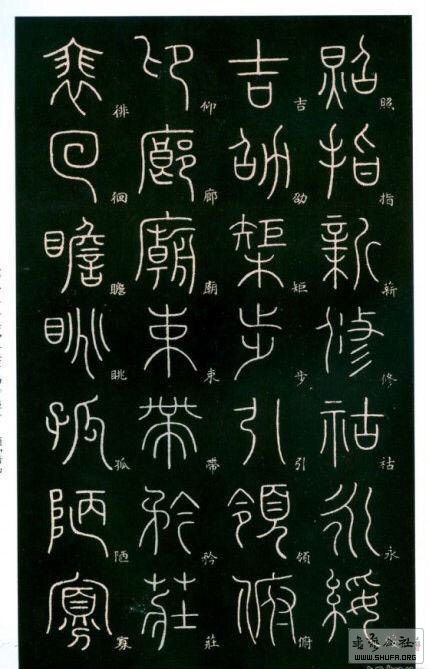 照指薪修祜永綏
吉劭矩步引領俯
仰廊廟束帶矜莊
徘徊瞻眺孤陋寡
WWW.SHUFA.ORG